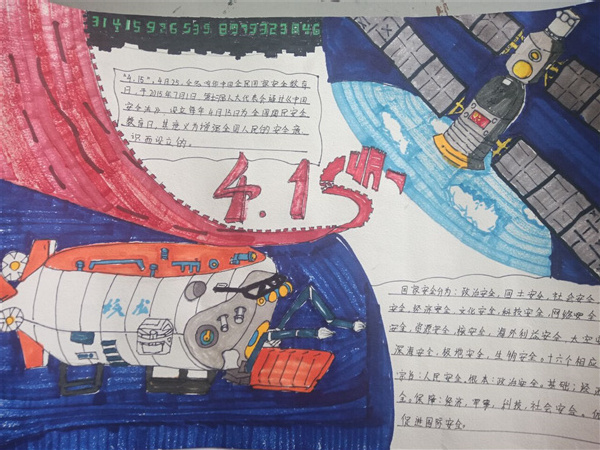 31415926535 8979323846
"4.15",4月25,全名为中国全民国家安全教育
日,于2015年7月1日,第12届人大代表会通过《中国
安全法》,设立每年4月15日为全国国民安全
教育日,其意义为增强全国人民的安全意
识而设立的。
4.15
蛟龙
国家安全分为:政治安全,国土安全,社会安全,
安全,经济安全,文化安全,科技安全,网络
安全,资源安全,核安全,海外利益安全,太空
深海安全,极地安全,生物安全。十六个相应
宗旨:人民安全,根本:政治安全,基础:经济
全。保障:经济,军事,科技,社会安全。
促进国际安全。